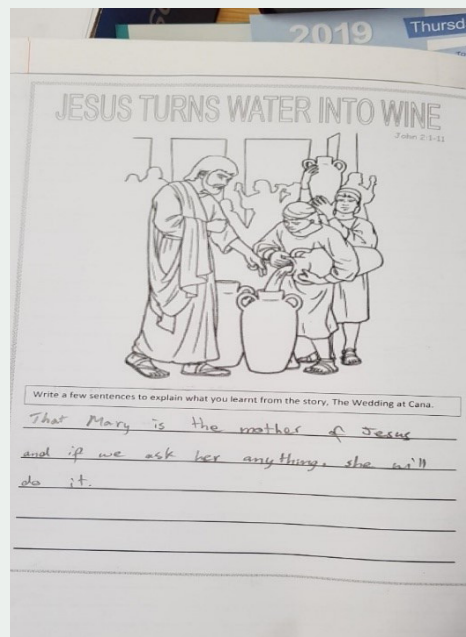 2019
Thursd
JESUS TURNS WATER INTO WINE
John 2:1-11
Write a few sentences to explain what you learnt from the story, The Wedding at Cana.
That Mary is the mother of Jesus
and if we ask her anything, she will
do it.